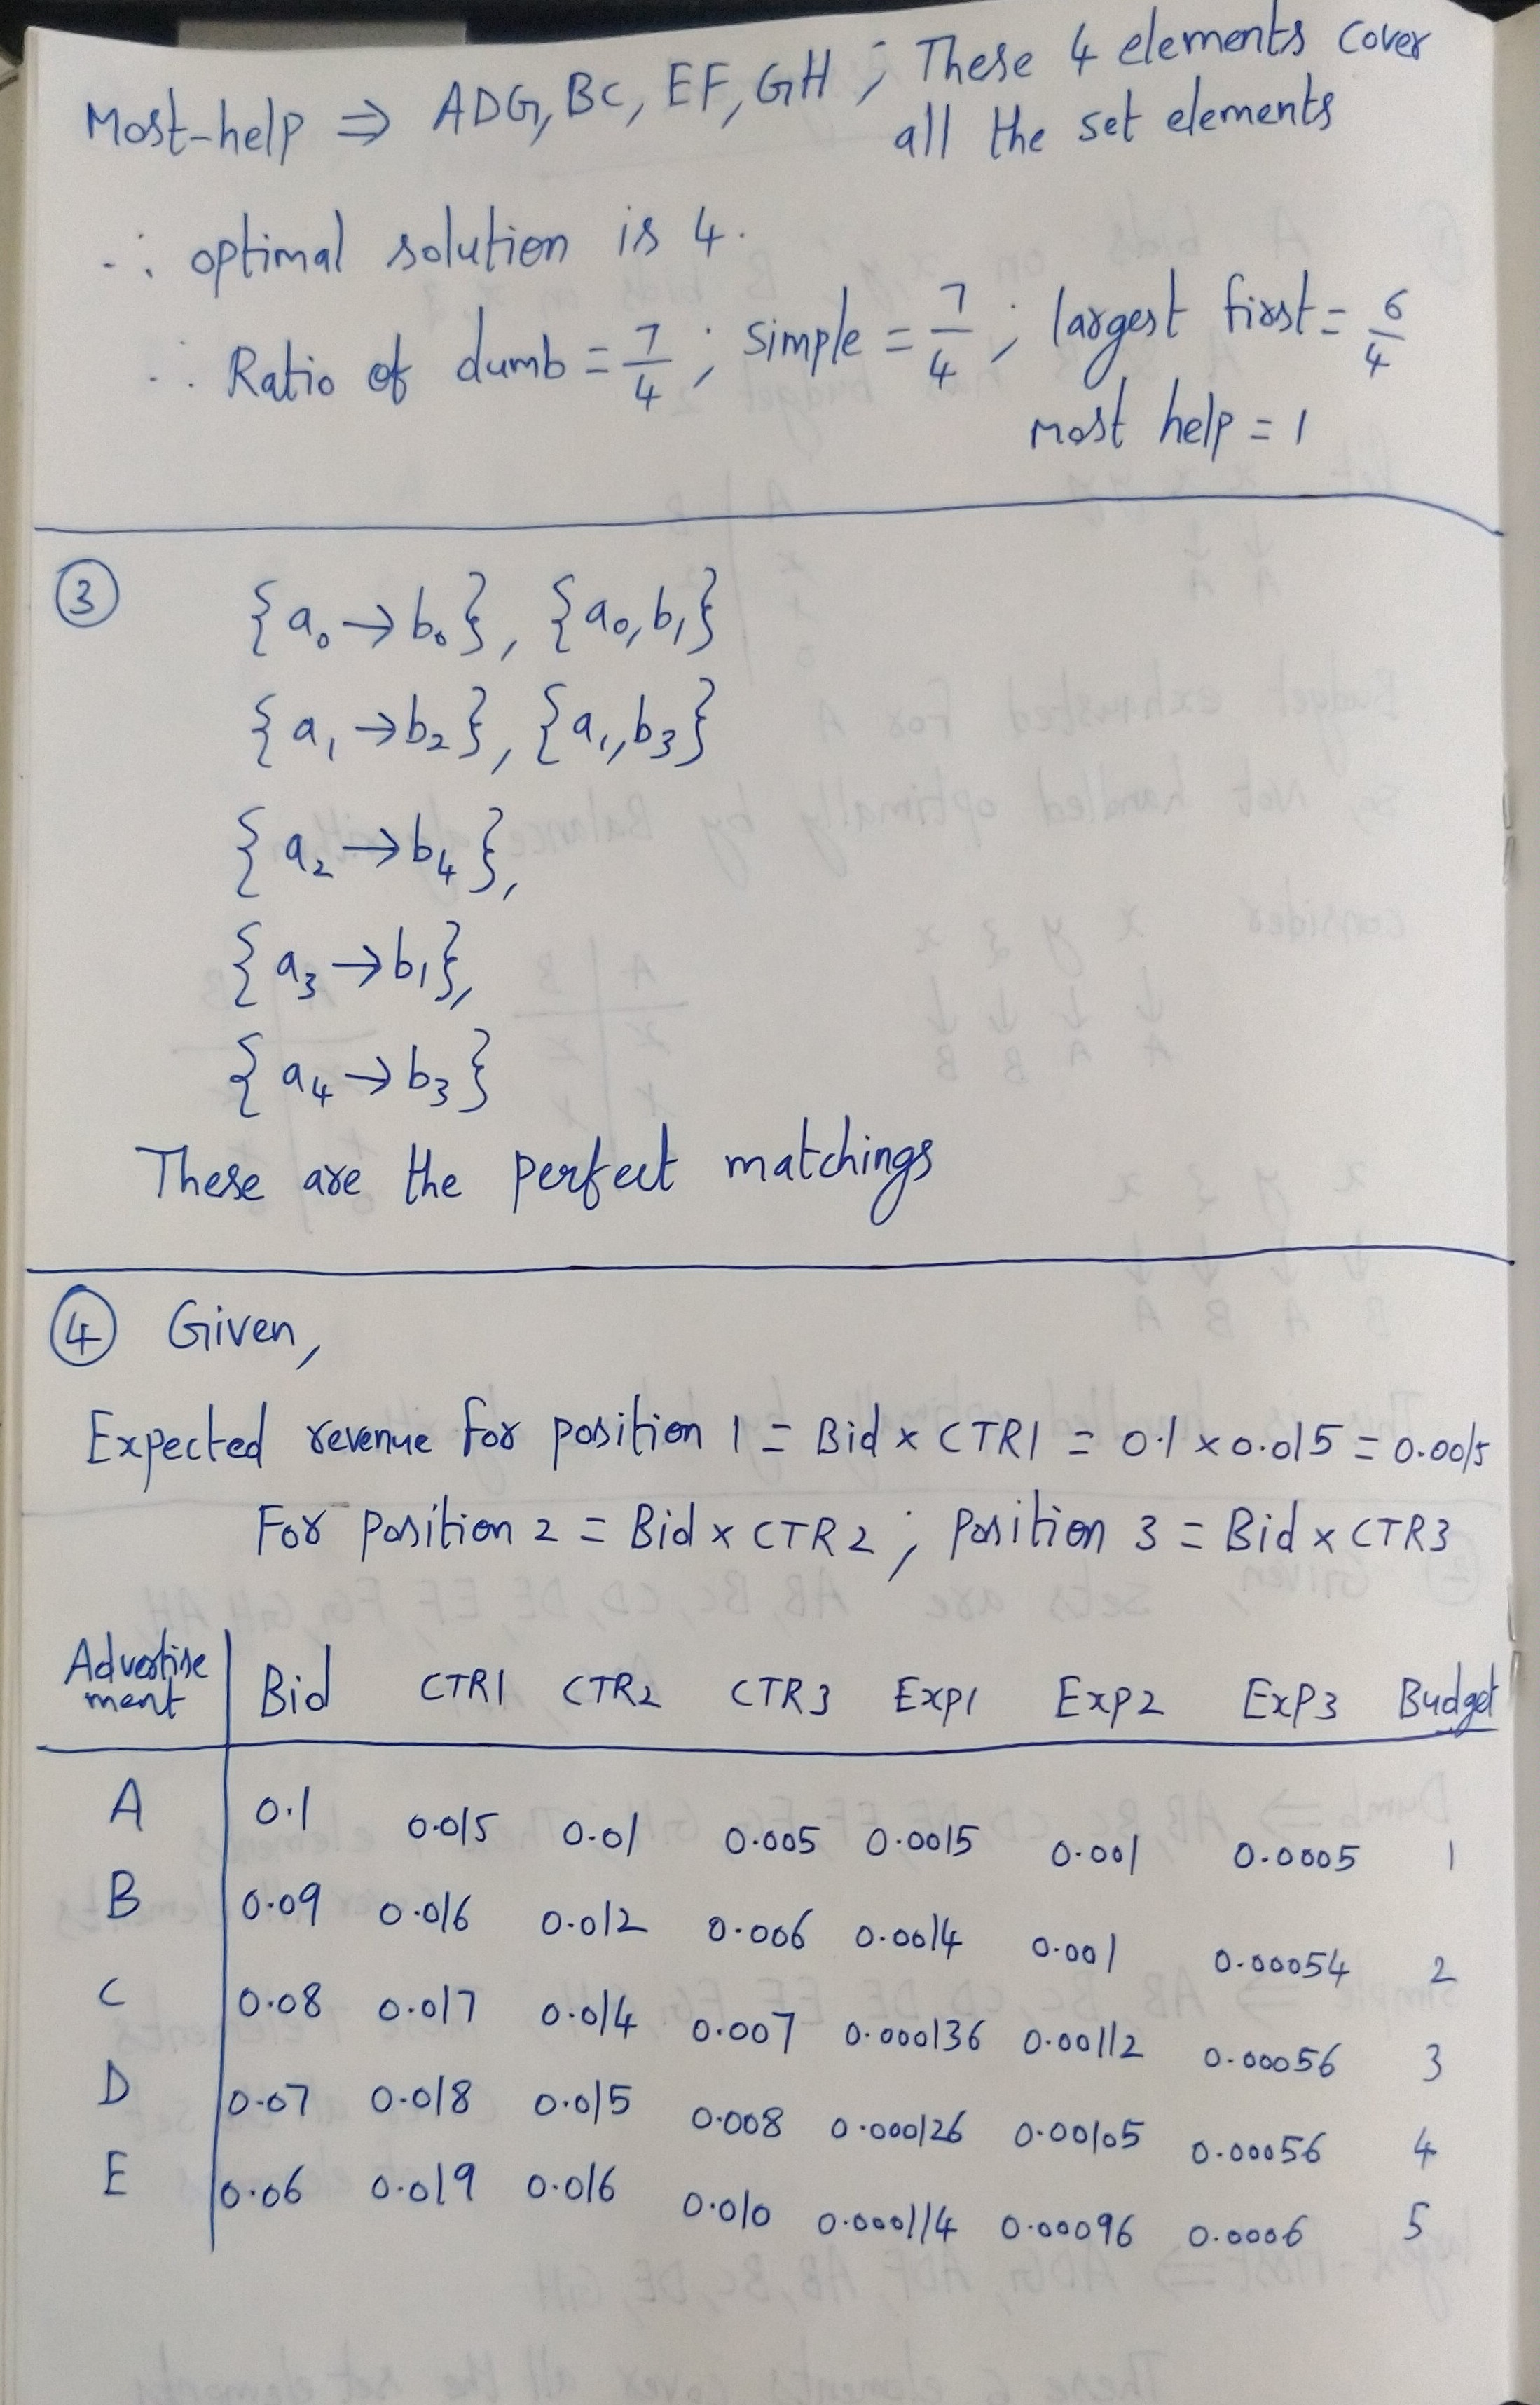 Most-help ⇒ ADG, BC, EF, GH ; These 4 elements cover
all the set elements
∴ optimal solution is 4.
∴ Ratio of dumb = 7/4 ; simple = 7/4 ; largest first = 6/4
most help = 1
③ {a₀→b₀}, {a₀,b₁}
{a₁→b₂}, {a₁,b₃}
{a₂→b₄},
{a₃→b₁},
{a₄→b₃}
These are the perfect matchings
④ Given,
Expected revenue for position 1 = Bid × CTR1 = 0.1 × 0.015 = 0.0015
For position 2 = Bid × CTR2 ; position 3 = Bid × CTR3
Advertise
ment Bid CTR1 CTR2 CTR3 Exp1 Exp2 Exp3 Budget
A 0.1 0.015 0.01 0.005 0.0015 0.001 0.0005 1
B 0.09 0.016 0.012 0.006 0.0014 0.001 0.00054 2
C 0.08 0.017 0.014 0.007 0.000136 0.00112 0.00056 3
D 0.07 0.018 0.015 0.008 0.000126 0.00105 0.00056 4
E 0.06 0.019 0.016 0.010 0.000114 0.00096 0.0006 5